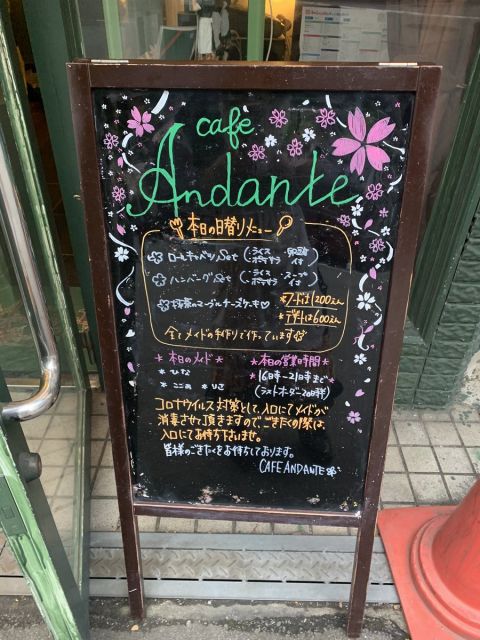 cafe
Andante
本日の日替りメニュー
ロールキャベツSet (・ライス ・ポテサラ
ハンバーグSet (・ライス ・スープ ・ポテサラ イオ)
抹茶のマーブルチーズケーキ♡
*フードは1200えん
*デザートは600えん
全てメイドの手作りで作っています
*本日のメイド*
*ひな
*ここあ *りさ
*本日の営業時間*
*16日寺〜21日寺まで*
(ラストオーダー20時半)
コロナウイルス対策として、入口にてメイドが
消毒させて頂きますので、ごきたくの際は、
入口にてお待ち下さいませ。
皆様のごきたくをお待ちしております。
CAFE ANDANTE